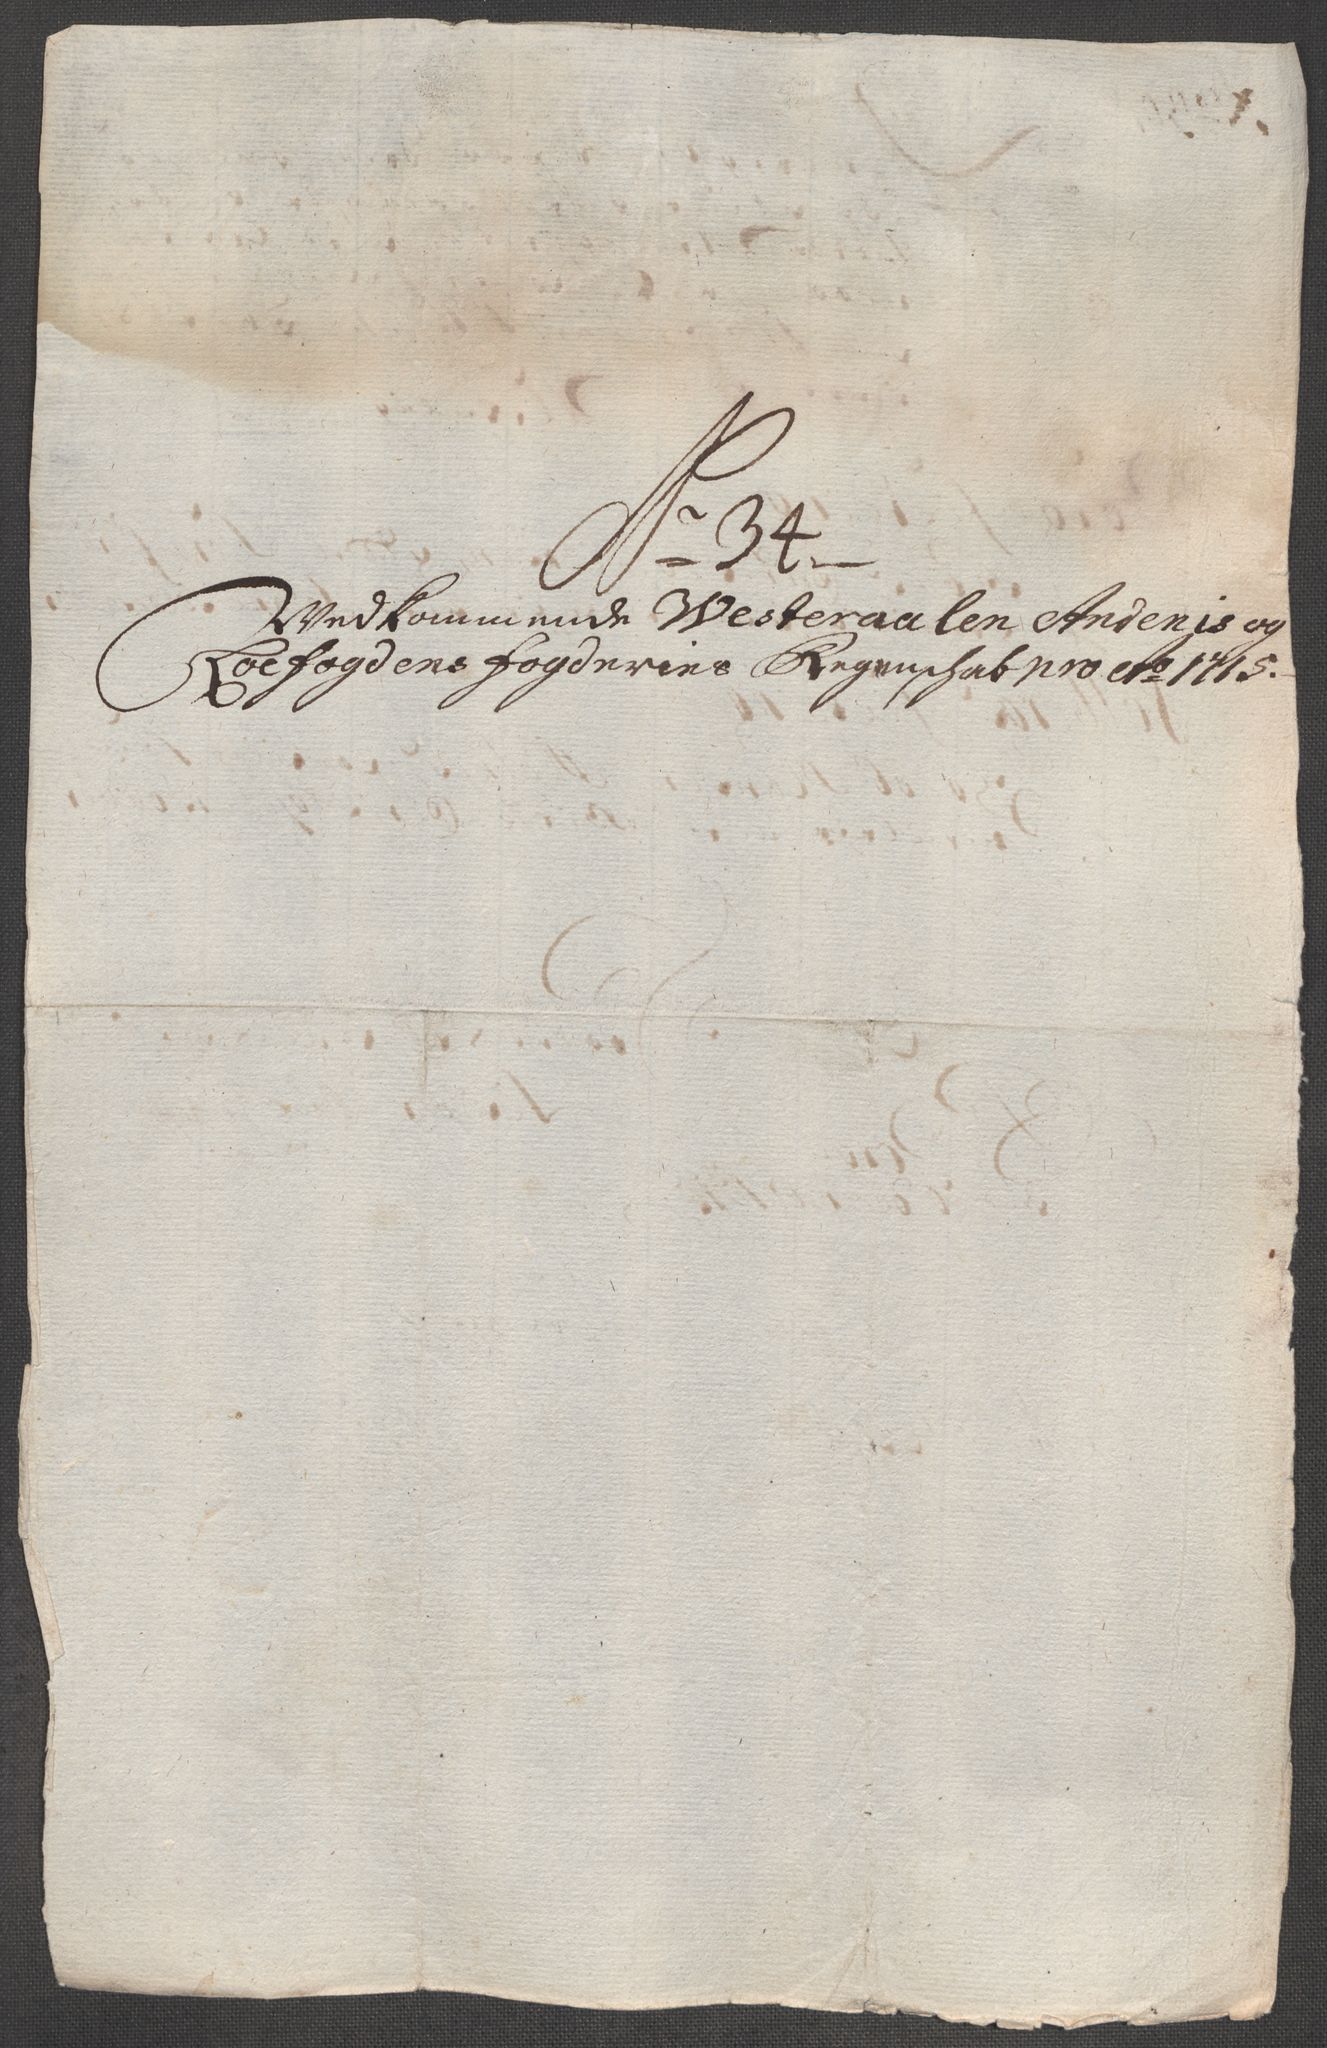 No 34
Vedkommende Westeraalen Andenis og
Loefogdens fogderies Regenschab pro Ao 1715.